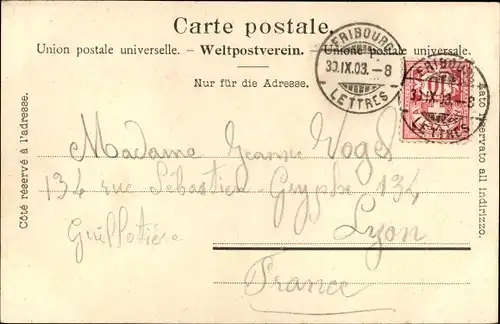 Carte postale.
Union postale universelle. – Weltpostverein. – Unione postale universale.
Nur für die Adresse.
Côté réservé à l'adresse.
Lato riservato all indirizzo.
FRIBOURG
30.IX.03. – 8
LETTRES
FRIBOURG
30.IX.03. – 8
LETTRES
10
Madame Jeanne Vogel
134 rue Sébastien-Gryphe 134
Guillotière
Lyon
France